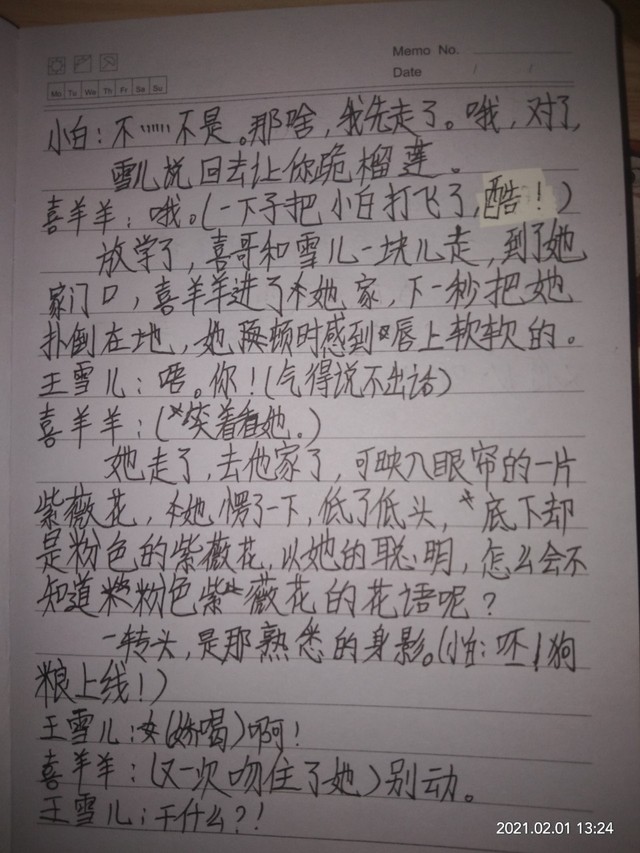 Memo No.
Date / /
Mo Tu We Th Fr Sa Su
小白：不……不是。那啥，我先走了。哦，对了，
雪儿说回去让你跪榴莲。
喜羊羊：哦。（一下子把小白打飞了，酷！）
放学了，喜哥和雪儿一块儿走，到了她
家门口，喜羊羊进了她家，下一秒把她
扑倒在地，她顿时感到唇上软软的。
王雪儿：唔。你！（气得说不出话）
喜羊羊：（笑着看她。）
她走了，去他家了，可映入眼帘的一片
紫薇花，她愣了一下，低了低头，底下却
是粉色的紫薇花，以她的聪明，怎么会不
知道粉色紫薇花的花语呢？
一转头，是那熟悉的身影。（小白：呸！狗
粮上线！）
王雪儿：（娇喝）啊！
喜羊羊：（又一次吻住了她）别动。
王雪儿：干什么？！
2021.02.01 13:24